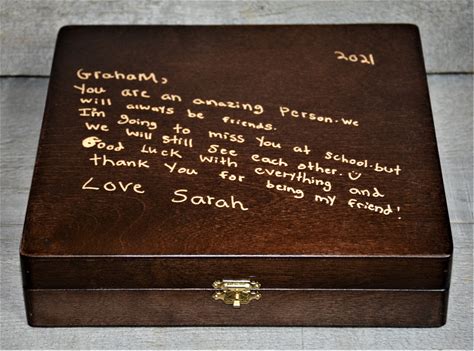 2021
GrahaM,
You are an amazing Person. we
will always be friends.
I'm going to miss you at school. but
we will still see each other. ☺
Good Luck with everything and
thank you for being my friend!
Love Sarah